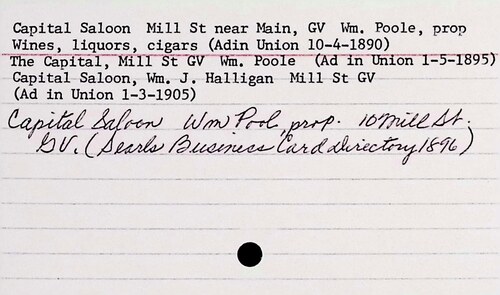 Capital Saloon  Mill St near Main, GV  Wm. Poole, prop
Wines, liquors, cigars (Adin Union 10-4-1890)
The Capital, Mill St GV  Wm. Poole  (Ad in Union 1-5-1895)
Capital Saloon, Wm. J. Halligan  Mill St GV
(Ad in Union 1-3-1905)
Capital Saloon  Wm Pool, prop.  10 Mill St.
GV. (Searls Business Card Directory 1896)